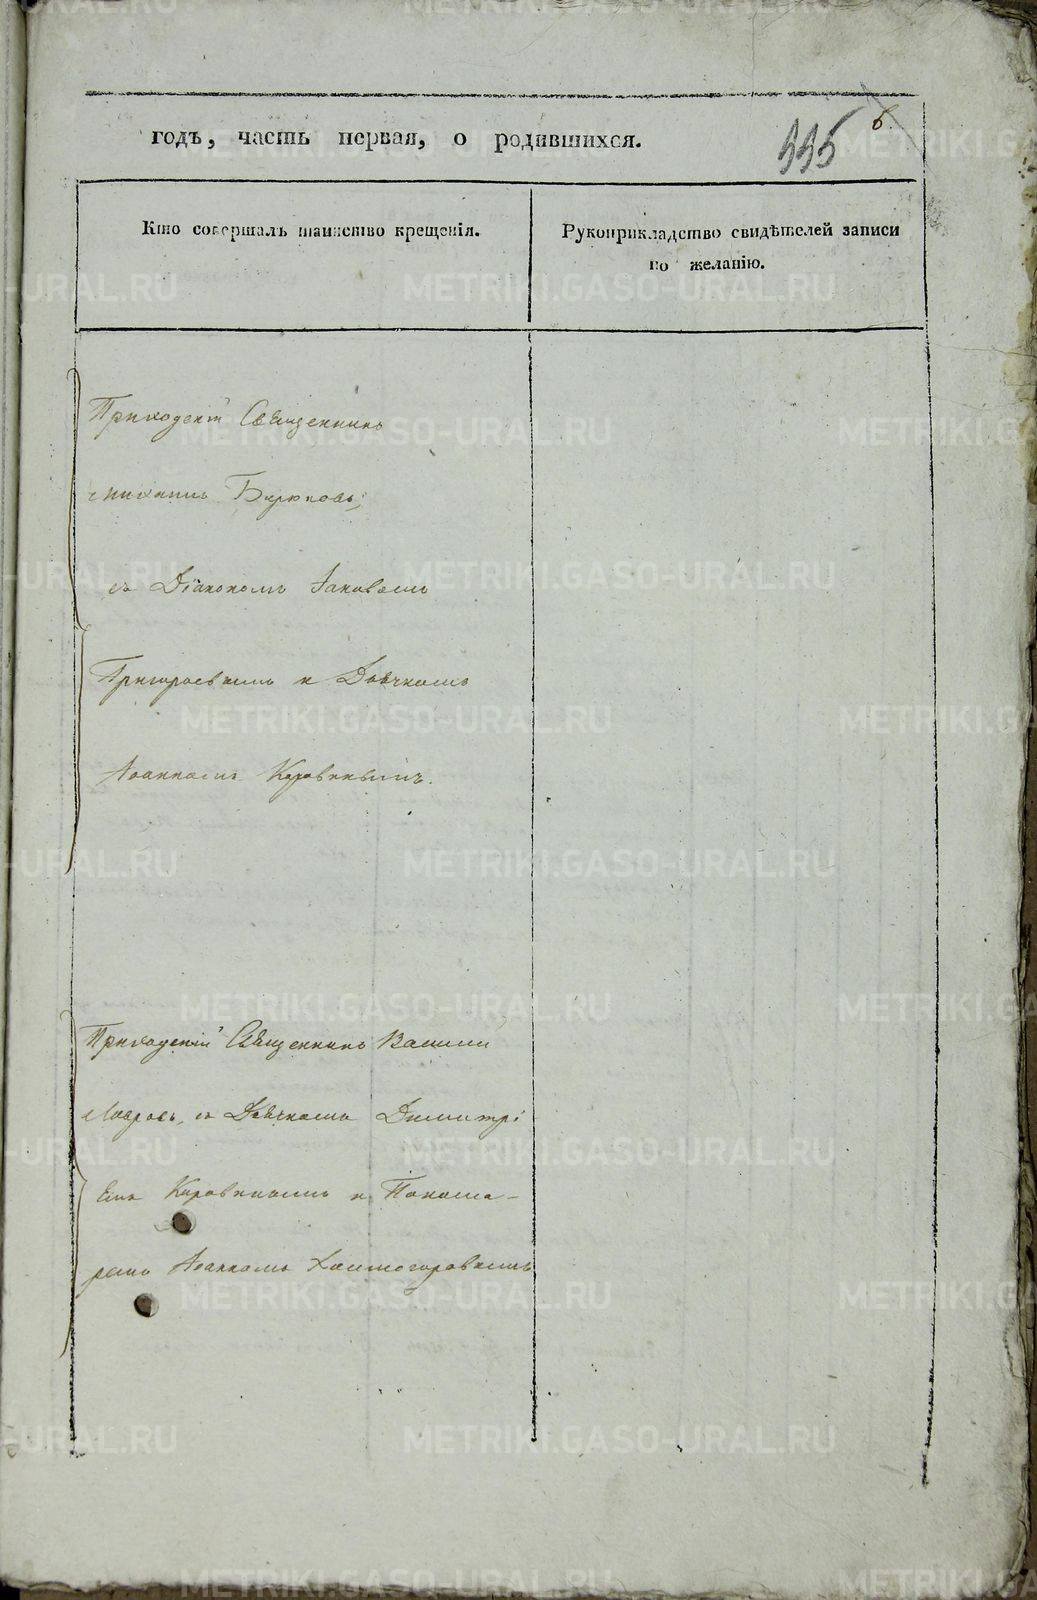 годъ, часть первая, о родившихся.
335 6.
Кто совершалъ таинство крещенія.
Рукоприкладство свидѣтелей записи
по желанію.
Приходскій Священникъ
Михаилъ Бирюковъ,
съ Діакономъ Іаковомъ
Григорьевымъ и Дьячкомъ
Іоанномъ Коровинымъ.
Приходскій Священникъ Василій
Лавровъ, съ Дьячкомъ Димитрі
емъ Коровинымъ и Понома-
ремъ Іоанномъ Хаминогоровымъ
METRIKI.GASO-URAL.RU